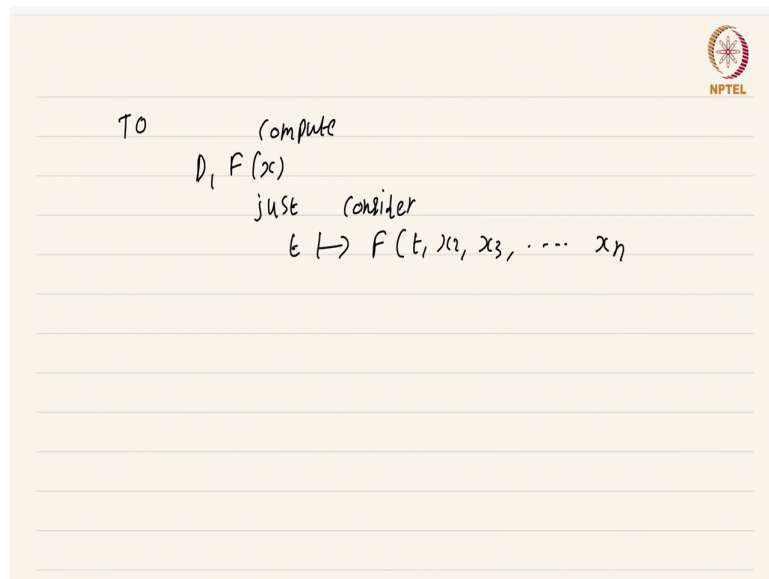 NPTEL
TO compute
D₁ F(x)
just consider
t ↦ F(t, x2, x3, ..... xn